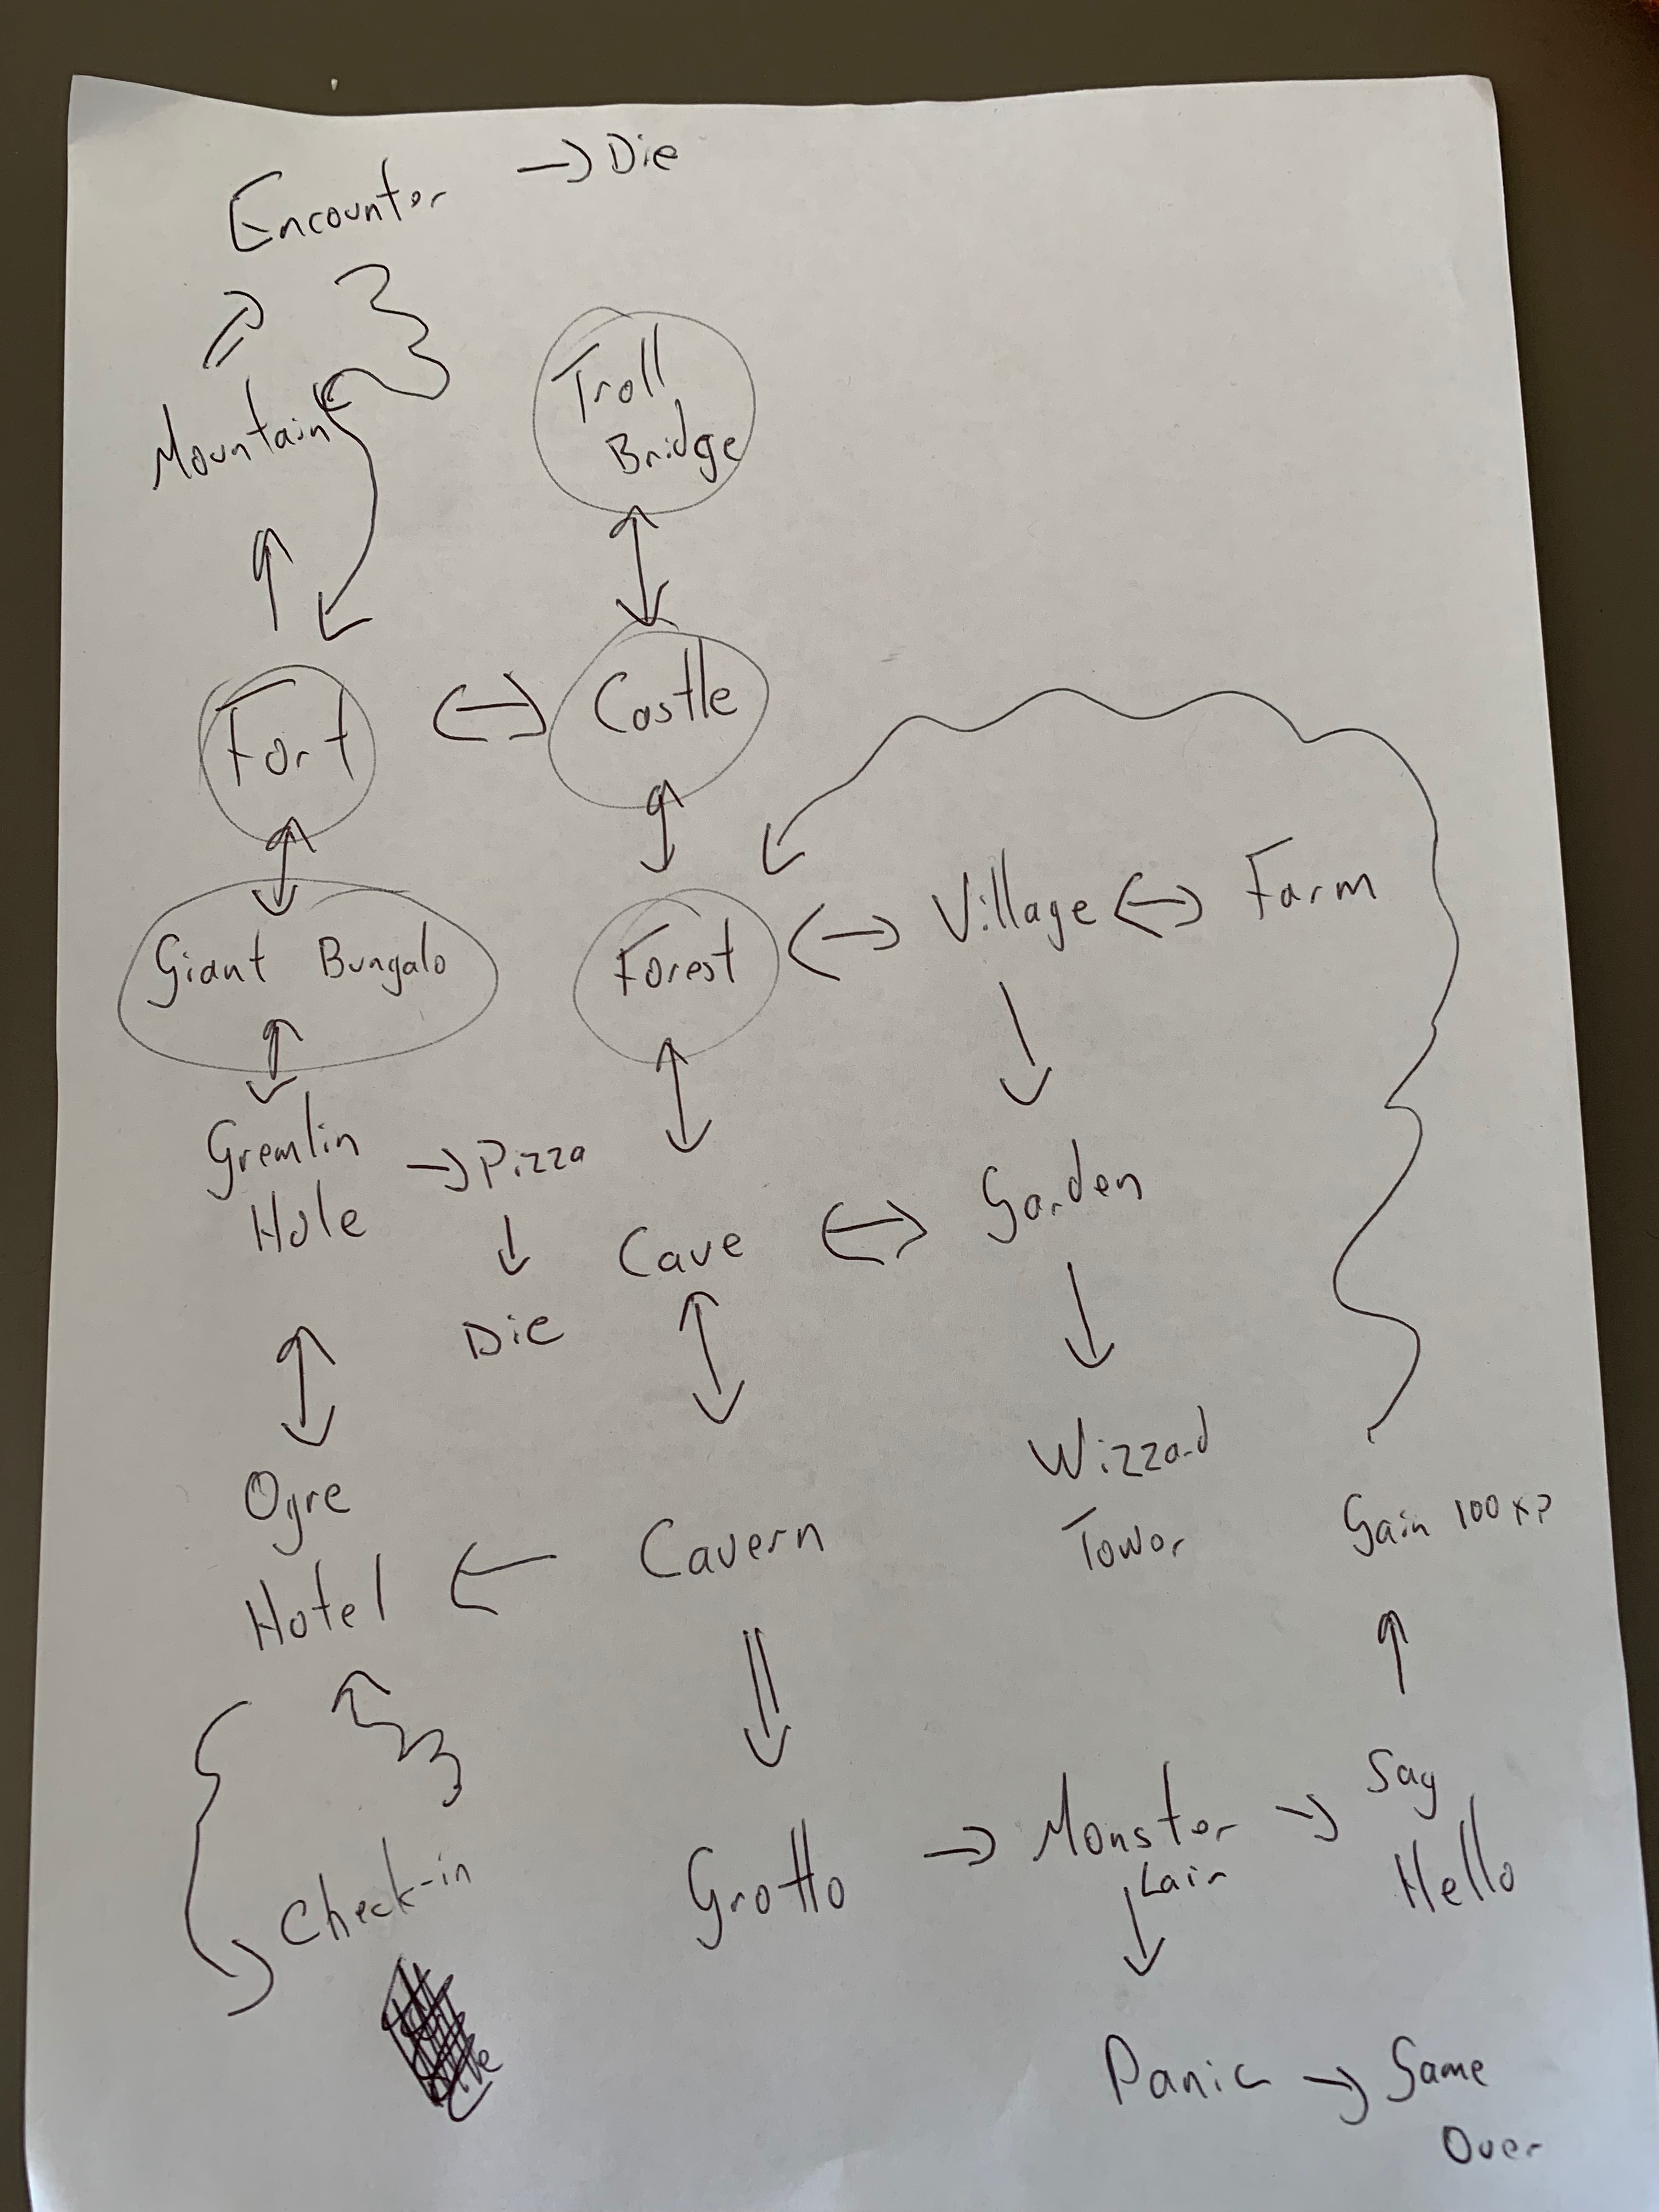 Encounter → Die
Mountain
Troll
Bridge
Fort ↔ Castle
Giant Bungalo
Forest ↔ Village ↔ Farm
Gremlin
Hole
→ Pizza
Die
Cave ↔ Garden
Ogre
Hotel ← Cavern
Wizzard
Tower
Gain 100 XP
Check-in
Grotto → Monster
Lair
→ Say
Hello
Panic → Game
Over